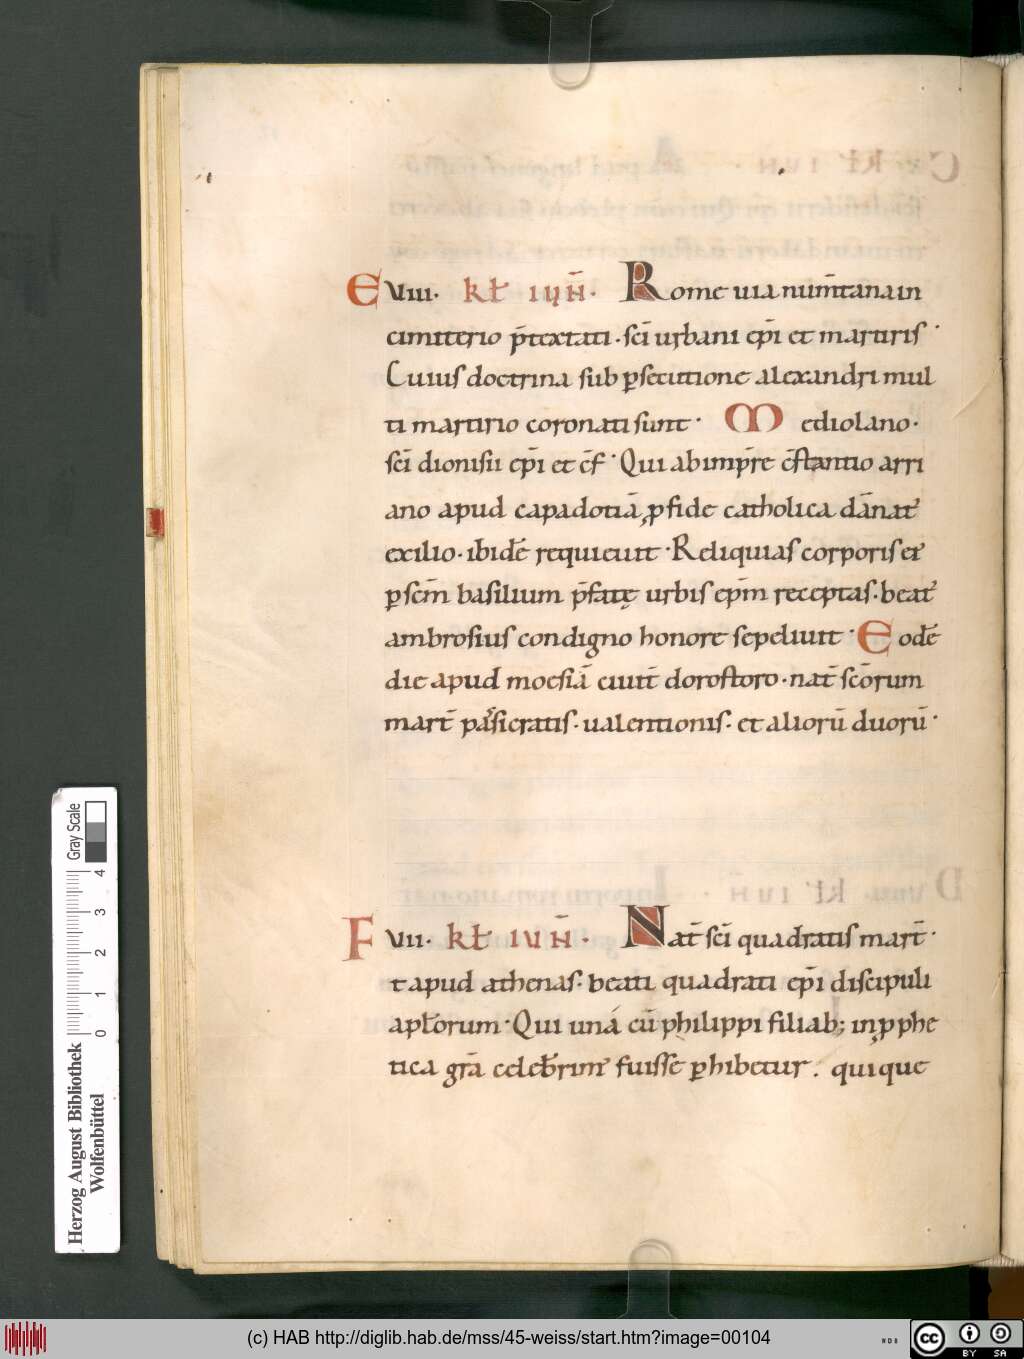 E VIII· kł IUN̄· Rome uia num̄tana in
cimiterio p̄textati·sc̄i urbani ep̄i et martiris·
Cuius doctrina sub ꝑsecutione alexandri mul
ti martirio coronati sunt· Mediolano·
sc̄i dionisii ep̄i et c̄f· Qui ab imp̄re c̄stantio arri
ano apud capadotiā, ꝓ fide catholica dānat᾽
exilio·ibidē requieuit·Reliquias corporis ei᾽
ꝑ sc̄m basilium p̄fatę urbis ep̄m receptas·beat᾽
ambrosius condigno honore sepeliuit·Eodē
die apud moesiā ciuit̄ dorostoro·nat̄ sc̄orum
mart̄ pasicratis·ualentionis·et aliorū duorū·
F VII· kł IUN̄· Nat̄ sc̄i quadratis mart̄·
t apud athenas·beati quadrati ep̄i discipuli
apƚorum·Qui uná cū philippi filiab; in ꝓphe
tica gr̄a celebrim᾽ fuisse ꝑhibetur. quique
Herzog August Bibliothek
Wolfenbüttel
0 1 2 3 4
Gray Scale
(c) HAB http://diglib.hab.de/mss/45-weiss/start.htm?image=00104
WDB
cc BY SA